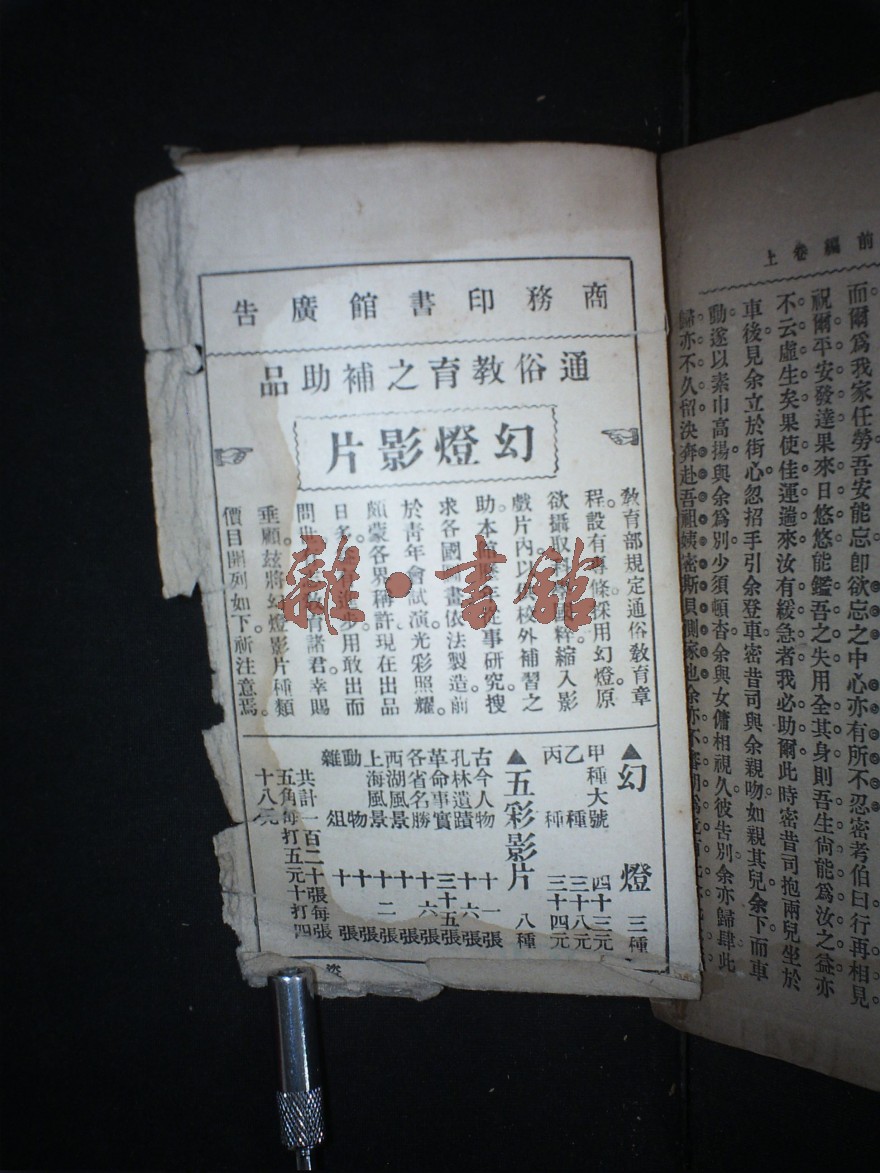 前編卷上
而爾爲我家任勞吾安能忘卽欲忘之中心亦有所不忍密考伯曰行再相見
祝爾平安發達果來日悠悠能鑑吾之失用全其身則吾生尙能爲汝之益亦
不云虛生矣果使佳運遄來汝有緩急者我必助爾此時密昔司抱兩兒坐於
車後見余立於街心忽招手引余登車密昔司與余親吻如親其兒余下而車
動遂以素巾高揚與余爲別少須頓杳余與女傭相視久彼告別余亦歸肆此
歸亦不久留決奔赴吾祖姨密斯貝測家也余亦不
商務印書館廣告
通俗教育之補助品
幻燈影片
教育部規定通俗教育章
程設有專條採用幻燈原
欲攝取粹縮入影
戲片內以校外補習之
助。本從事研究。搜
求各國畫依法製造。前
於青年會試演光彩照耀。
頗蒙各界稱許。現在出品
日多。進步用敢出而
問世教育諸君。幸賜
垂顧。茲將幻燈影片種類
價目開列如下。祈注意焉。
▲幻燈 三種
甲種大號 四十三元
乙種 三十八元
丙種 三十四元
▲五彩影片 八種
古今人物 十一張
孔林遺蹟 十六張
革命事實 三十五張
各省名勝 十六張
西湖風景 十張
上海風景 十二張
動物 十張
雜組 十張
共計一百二十張每張
五角每打五元十打四
十八元
雜·書館